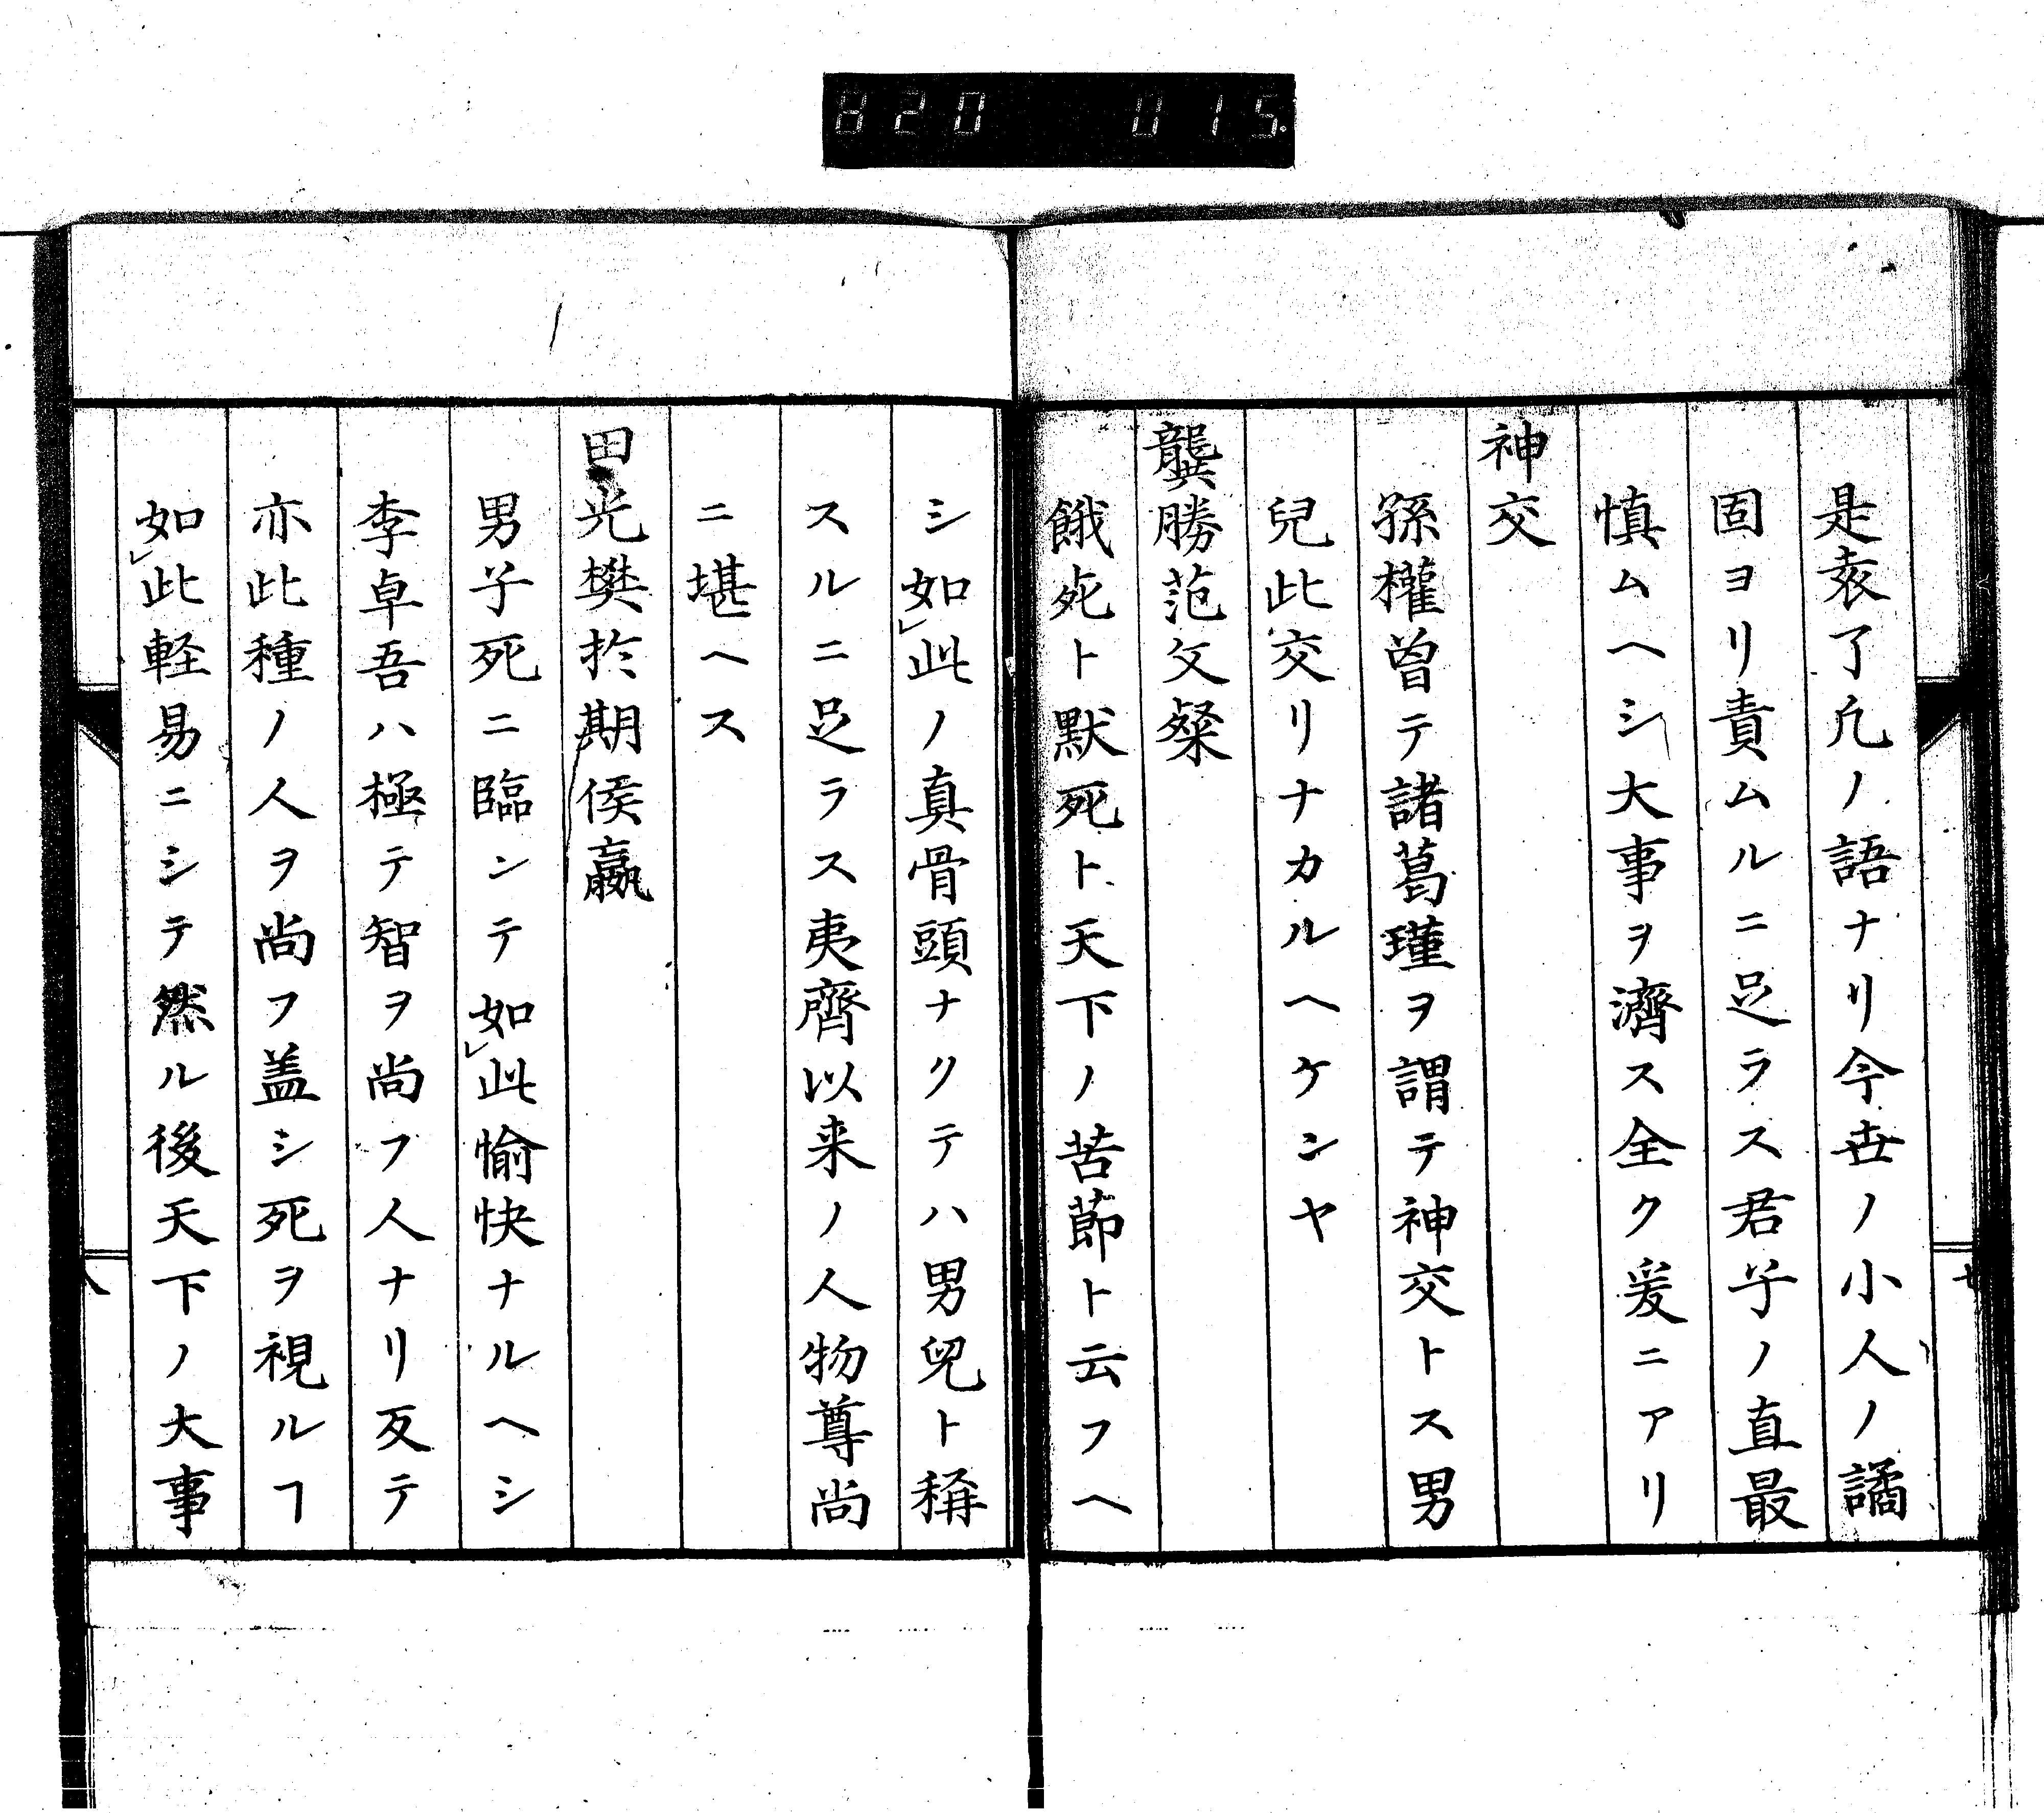 820 015.
是衰了凡ノ語ナリ今世ノ小人ノ譎
固ヨリ責ムルニ足ラス君子ノ直最
慎ムヘシ大事ヲ濟ス全ク爰ニアリ
神交
孫權曽テ諸葛瑾ヲ謂テ神交トス男
兒此交リナカルヘケンヤ
龔勝范文粲
餓死ト默死ト天下ノ苦節ト云フヘ
シ如㆑此ノ真骨頭ナクテハ男兒ト稱
スルニ足ラス夷齊以来ノ人物尊尚
ニ堪ヘス
田光樊於期侯嬴
男子死ニ臨ンテ如㆑此愉快ナルヘシ
李卓吾ハ極テ智ヲ尚フ人ナリ反テ
亦此種ノ人ヲ尚フ盖シ死ヲ視ルヿ
如㆑此軽易ニシテ然ル後天下ノ大事